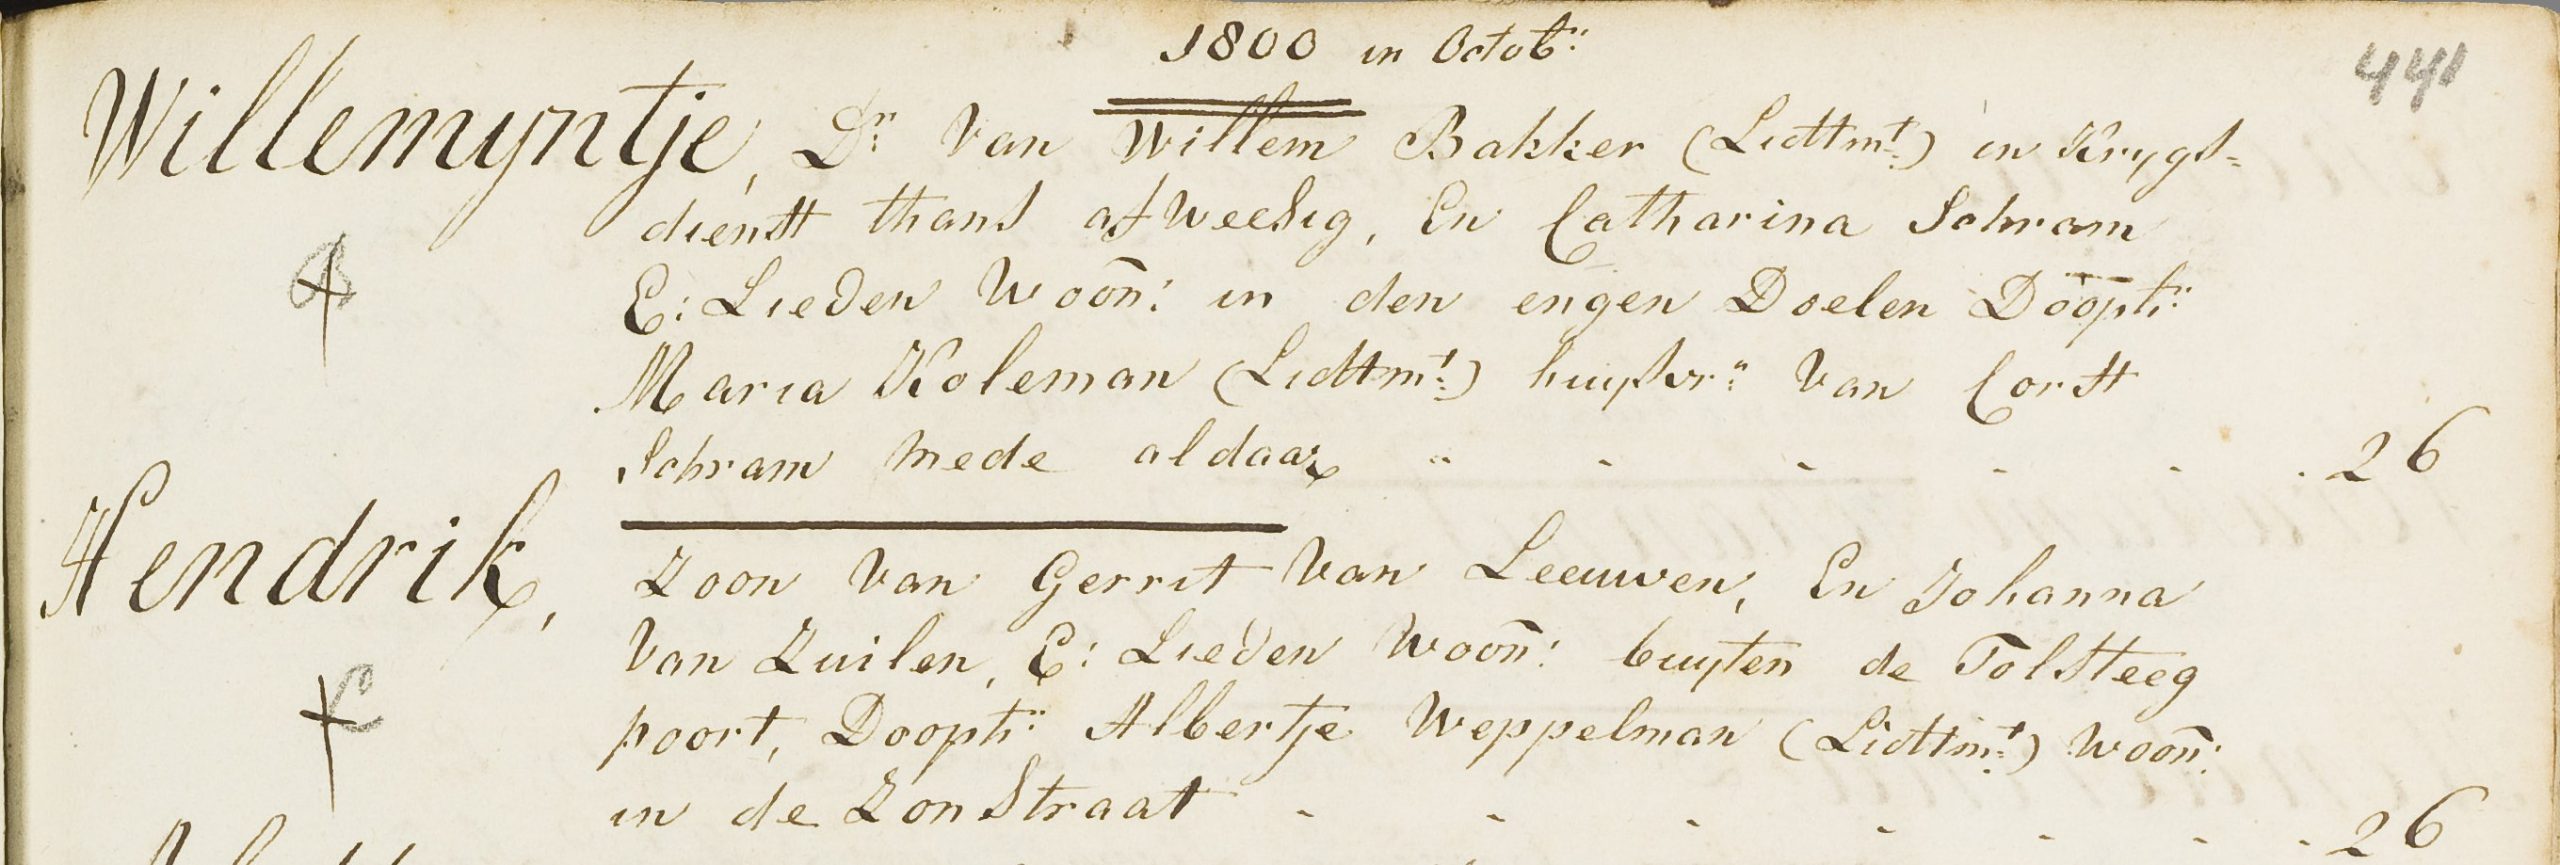 1800 in Octob:
441
Willemyntje, Dr: van Willem Bakker (Lidtmt:) in Krygs=
dienst thans afweesig, En Catharina Schram
E: Lieden Woon: in den engen Doelen Doopth:
Maria Koleman (Lidtmt:) huysvr: van Corst
Schram mede aldaar " - - - - . 26
Hendrik, Zoon van Gerrit van Leeuwen, En Johanna
van Zuilen, E: Lieden Woon: buyten de Tolsteeg
poort, Doopth: Albertje Weppelman (Lidtmt:) Woon:
in de Zonstraat - - - - - - . 26